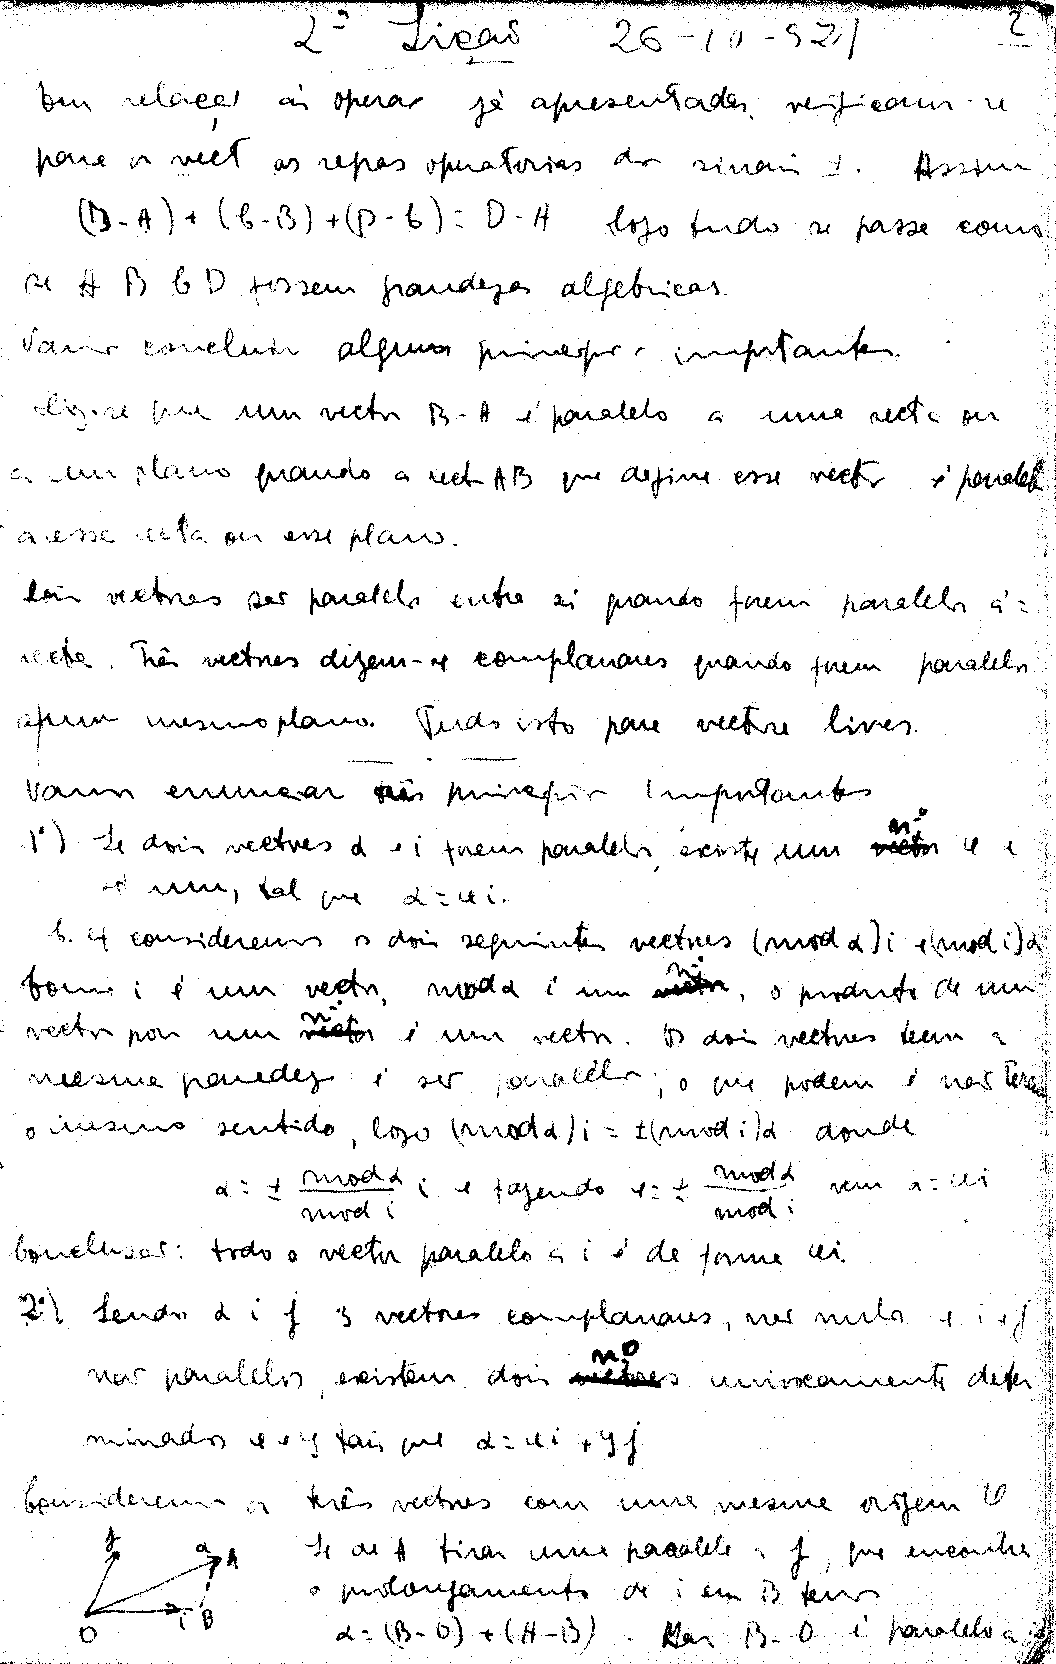 2ª Lição 26-10-52 2
Em relação ás operaç já apresentadas, verificam-se
para os vect as regras operatorias dos sinais ±. Assim
(B-A) + (C-B) + (D-C) = D-A logo tudo se passa como
se A B C D fossem grandezas algebricas.
Vamos concluir alguns principios importantes.
diz-se que um vector B-A é paralelo a uma recta ou
a um plano quando a rect AB que define esse vector é paralel
a essa recta ou esse plano.
Dois vectores são paralelos entre si quando forem paralelos á =
recta. Três vectores dizem-se complanares quando forem paralelos
a um mesmo plano. Tudo isto para vectores livres.
Vamos enunciar três principios importantes
1º) Se dois vectores α e i forem paralelos, existe um nº x e
só um, tal que α = xi.
C. ef consideremos os dois seguintes vectores (mod α) i e (mod i) α
Como i é um vector, mod α é um nº, o produto de um
vector por um nº é um vector. Os dois vectores teem a
mesma grandeza e são paralelos, o que podem é não terem
o mesmo sentido, logo (mod α) i = ±(mod i) α donde
α = ± mod α / mod i i e fazendo x = ± mod α / mod i vem α = xi
Conclusão: todo o vector paralelo a i é da forma xi.
2º) Sendo α i j 3 vectores complanares, não nulos e i e j
não paralelos, existem dois nº univocamente deter
minados x e y tais que α = xi + yj
Consideremos os três vectores com uma mesma origem O
Se de A tirar uma paralela a j, que encontra
o prolongamento de i em B temos
α = (B-O) + (A-B). Mas B-O é paralelo a i
j α A
i B
O